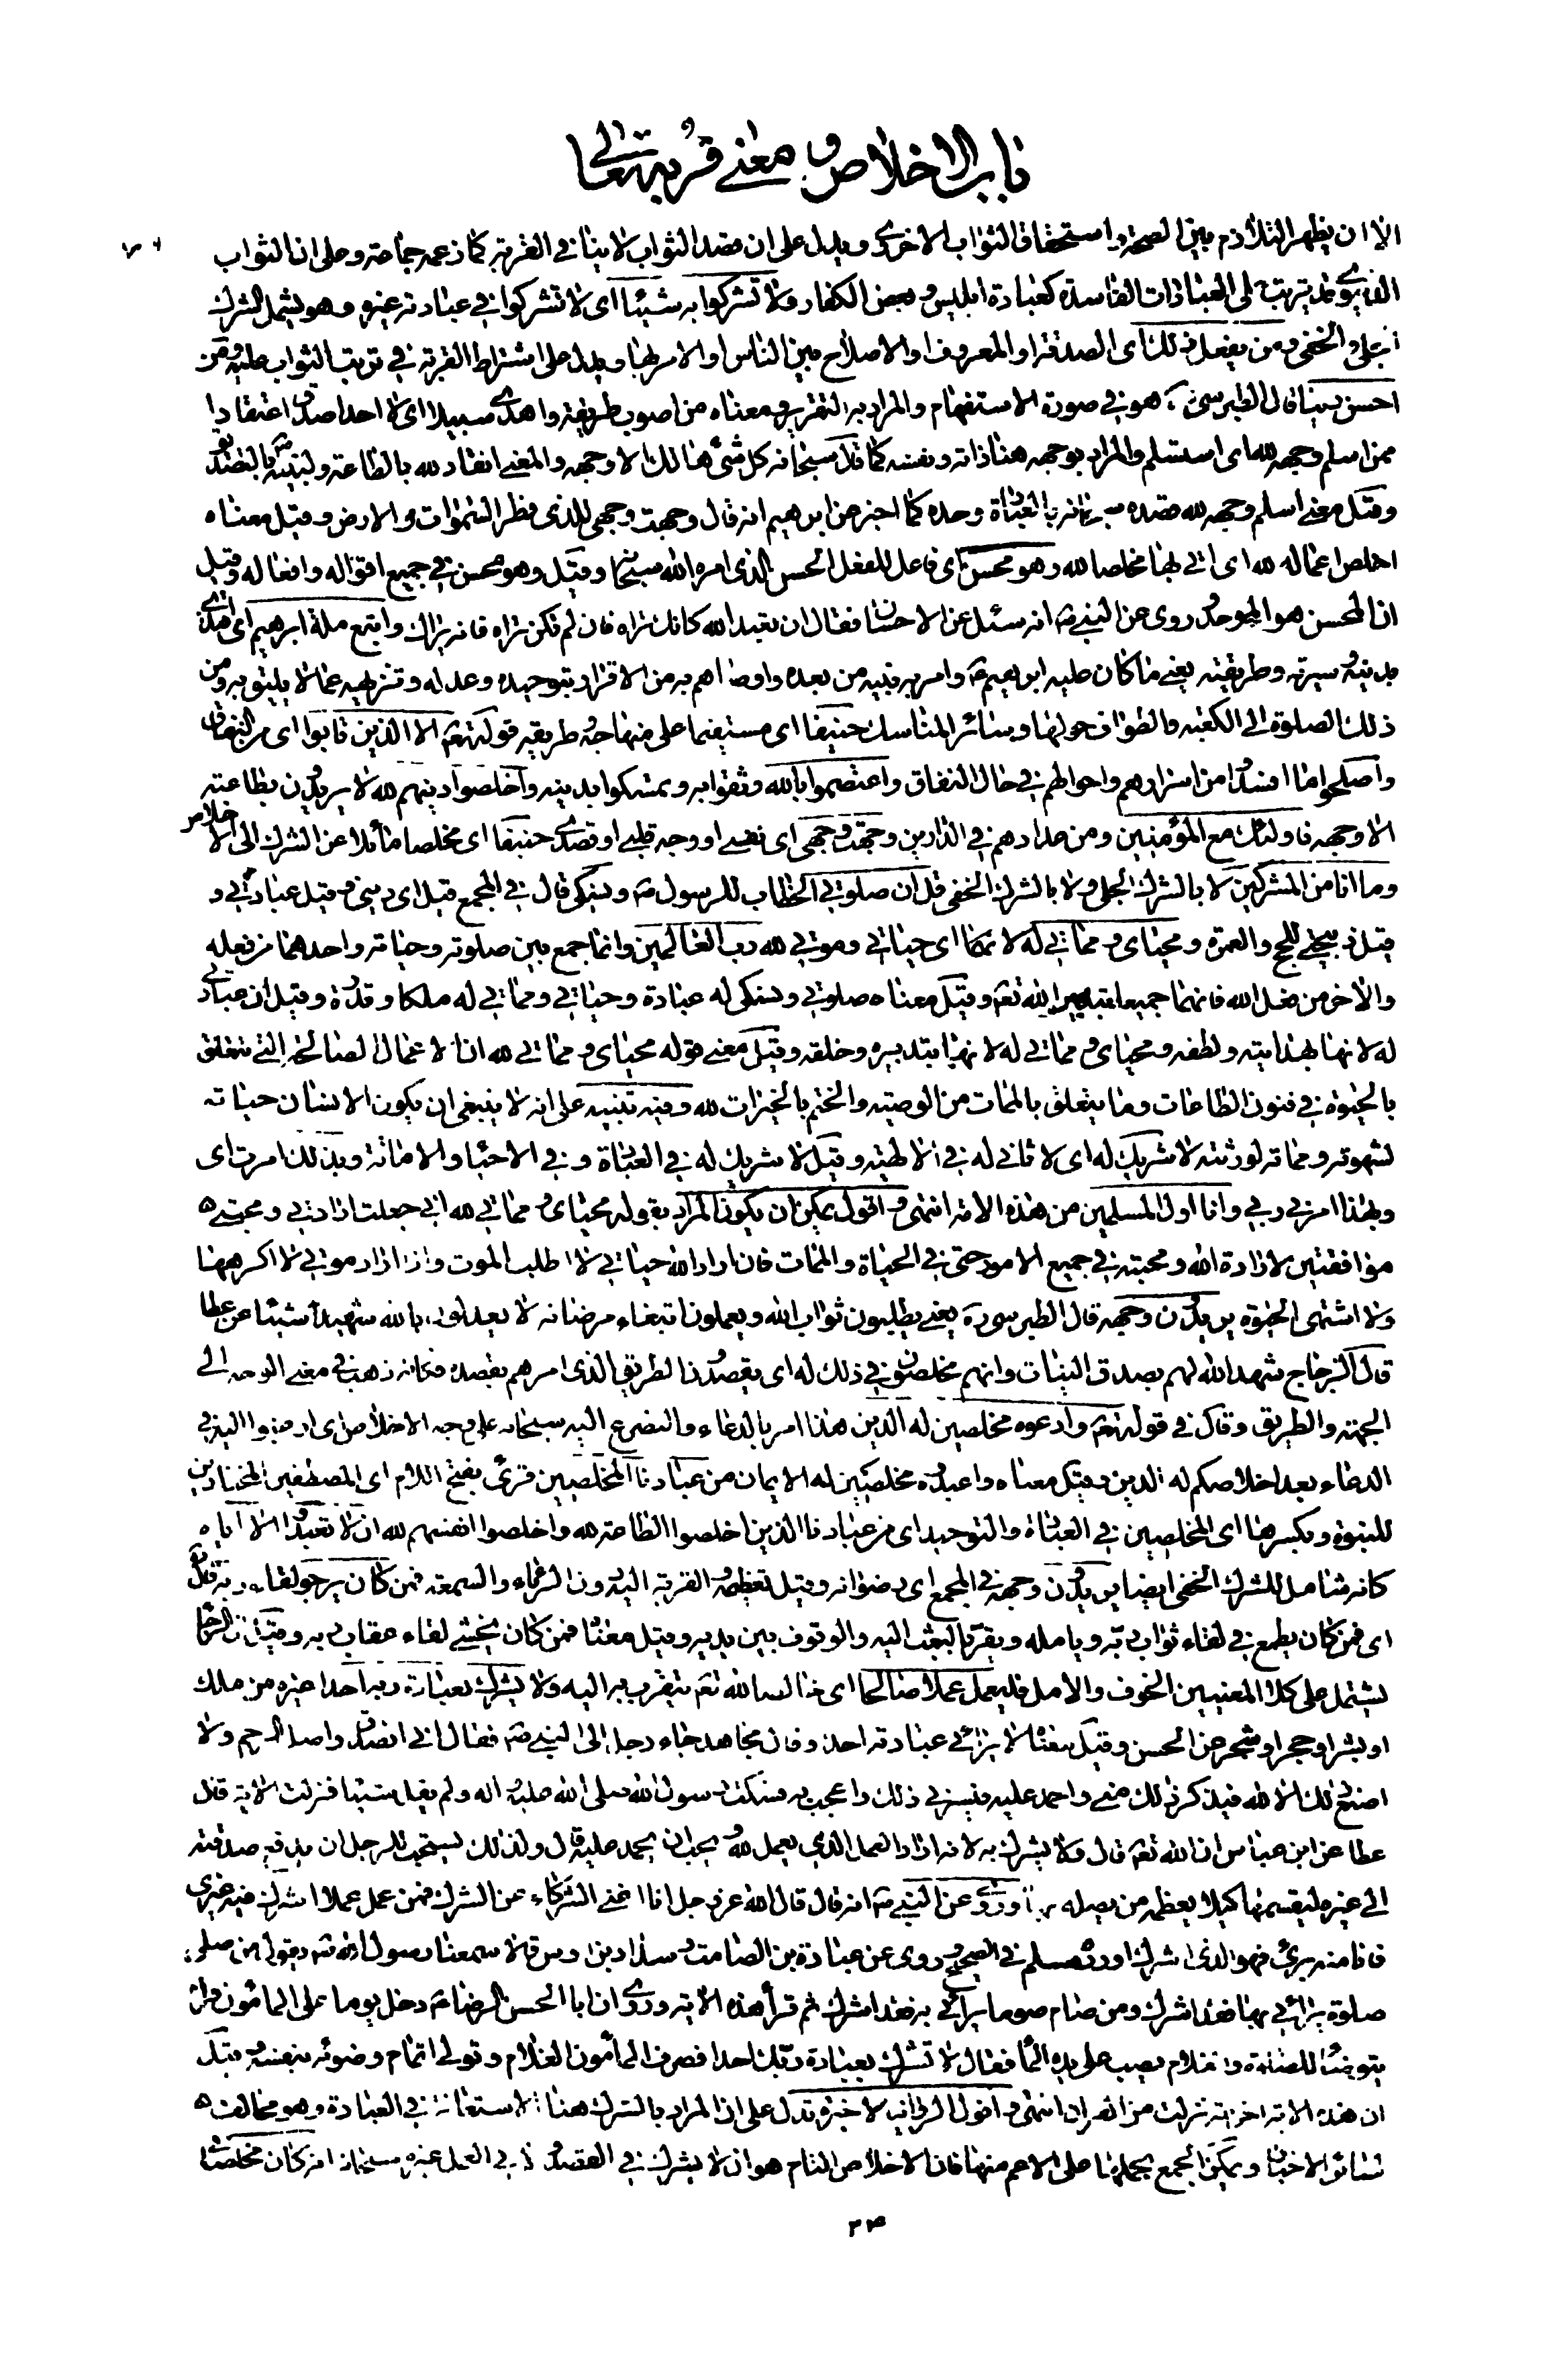 باب الاخلاص و معنى قربه تعالى
الا ان يظهر التلازم بين الصحة و استحقاق الثواب الاخروى و يدل على ان قصد الثواب لا ينافى القربة كما زعمه جماعة و على ان الثواب
الدنيوى قد يترتب على العبادات الفاسدة كعبادة ابليس و بعض الكفار ولا تشركوا به شيئا اى لا تشركوا فى عبادته غيره و هو يشمل الشرك
الجلى و الخفى و من يفعل ذلك اى الصدقة او المعروف او الاصلاح بين الناس او الامر بها و يدل على اشتراط القربة فى ترتب الثواب عليه و من
احسن دينا قال الطبرسى ره هو فى صورة الاستفهام و المراد به التقرير و معناه من اصوب طريقة و اهدى سبيلا اى لا احد اصدق اعتقادا
ممن اسلم وجهه لله اى استسلم و المراد بوجهه هنا ذاته و نفسه كما قال سبحانه كل شئ هالك الا وجهه و المعنى انقاد لله بالطاعة و لنبيه ص بالتصديق
و قيل معنى اسلم وجهه لله قصده سبحانه بالعبادة وحده كما اخبر عن ابرهيم انه قال وجهت وجهى للذى فطر السموات و الارض و قيل معناه
اخلص اعماله لله اى اتى بها مخلصا لله و هو محسن اى فاعل للفعل الحسن الذى امره الله سبحانه و قيل و هو محسن فى جميع اقواله و افعاله و قيل
ان المحسن هو الموحد و روى عن النبى ص انه سئل عن الاحسان فقال ان تعبد الله كانك تراه فان لم تكن تراه فانه يراك و اتبع ملة ابرهيم اى اقتدى
بدينه و سيرته و طريقته يعنى ما كان عليه ابرهيم ع و امر به بنيه من بعده و اوصاهم به من الاقرار بتوحيده و عدله و تنزيهه عما لا يليق به و من
ذلك الصلوة الى الكعبة و الطواف حولها و سائر المناسك حنيفا اى مستقيما على منهاجه و طريقه قوله تعم الا الذين تابوا اى من النفاق
و اصلحوا ما افسدوا من اسرارهم و احوالهم فى حال النفاق و اعتصموا بالله و ثقوا به و تمسكوا بدينه و اخلصوا دينهم لله لا يريدون بطاعته
الا وجهه فاولئك مع المؤمنين و من عدادهم فى الدارين وجهت وجهى اى نفسى او وجه قلبى او قصدى حنيفا اى مخلصا مائلا عن الشرك الى الاخلاص
و ما انا من المشركين لا بالشرك الجلى و لا بالشرك الخفى قل ان صلوتى الخطاب للرسول ص و نسكى قال فى المجمع قيل اى دينى و قيل عبادتى و
قيل ذبيحتى للحج و العمرة و محياى و مماتى اى حياتى و موتى لله رب العالمين و انما جمع بين صلوته و حياته و احدهما من فعله
و الاخر من فعل الله فانهما جميعا بتدبير الله تعم و قيل معناه صلوتى و نسكى له عبادة و حياتى و مماتى له ملكا و قدرة و قيل ان عبادتى
له لانها بهدايته و لطفه و محياى و مماتى له لانها بتدبيره و خلقه و قيل معنى قوله محياى و مماتى لله ان الاعمال الصالحة التى تتعلق
بالحيوة فى فنون الطاعات و ما يتعلق بالممات من الوصية و الختم بالخيرات لله و فيه تنبيه على انه لا ينبغى ان يكون الانسان حياته
لشهوته و مماته لورثته لا شريك له اى لا ثانى له فى الالهية و قيل لا شريك له فى العبادة و فى الاحياء و الاماتة و بذلك امرت اى
و بهذا امرنى ربى و انا اول المسلمين من هذه الامة انتهى و اقول يمكن ان يكون المراد بقوله محياى و مماتى لله انى جعلت ارادتى و محبتى
موافقتين لارادة الله و محبته فى جميع الامور حتى فى الحياة و الممات فان اراد الله حياتى لا اطلب الموت و اذا اراد موتى لا اكرهها
و لا اشتهى الحيوة يريدون وجهه قال الطبرسى ره يعنى يطلبون ثواب الله و يعملون ابتغاء مرضاته لا يعدلون بالله شيئا عن عطا
قال الزجاج شهد الله لهم بصدق النيات و انهم مخلصون فى ذلك له اى يقصدون الطريق الذى امرهم بقصده فكانه ذهب فى معنى الوجه الى
الجهة و الطريق و قال فى قوله تعم و ادعوه مخلصين له الدين هذا امر بالدعاء و التضرع اليه سبحانه على وجه الاخلاص اى ارغبوا اليه فى
الدعاء بعد اخلاصكم له الدين و قيل معناه و اعبدوه مخلصين له الايمان من عبادنا المخلصين قرئ بفتح اللام اى المصطفين المختارين
للنبوة و بكسرها اى المخلصين فى العبادة و التوحيد اى من عبادنا الذين اخلصوا الطاعة لله و اخلصوا انفسهم لله ان لا تعبدوا الا اياه
كانه شامل للشرك الخفى ايضا يريدون وجهه فى المجمع اى رضوانه و قيل تعظيمه و القربة اليه دون الرياء و السمعة فمن كان يرجو لقاء ربه قال
اى فمن كان يطمع فى لقاء ثواب ربه و يامله و يقر بالبعث اليه و الوقوف بين يديه و قيل معناه فمن كان يخشى لقاء عقاب ربه و قيل ان الرجا
يشتمل على كلا المعنيين الخوف و الامل فليعمل عملا صالحا اى خالصا لله تعم يتقرب به اليه و لا يشرك بعبادة ربه احدا غيره من ملك
او بشر او حجر او شجر عن الحسن و قيل معناه لا يرائى عبادته احدا و قال مجاهد جاء رجل الى النبى ص فقال انى اتصدق و اصل الرحم و لا
اصنع ذلك الا لله فيذكر ذلك منى و احمد عليه فيسرنى ذلك و اعجب به فسكت رسول الله صلى الله عليه و اله و لم يقل شيئا فنزلت الاية قال
عطا عن ابن عباس ان الله تعم قال و لا يشرك به لانه اراد العمل الذى يعمل لله و يحب ان يحمد عليه قال و لذلك يستحب للرجل ان يدفع صدقته
الى غيره ليقسمها كيلا يعظمه من يصله بها و روى عن النبى ص انه قال قال الله عز و جل انا اغنى الشركاء عن الشرك فمن عمل عملا اشرك فيه غيرى
فانا منه برئ فهو للذى اشرك اورده مسلم فى الصحيح و روى عن عبادة بن الصامت و شداد بن اوس قالا سمعنا رسول الله ص يقول من صلى
صلوة يرائى بها فقد اشرك و من صام صوما يرائى به فقد اشرك ثم قرأ هذه الاية و روى ان ابا الحسن الرضا ع دخل يوما على المامون فراه
يتوضأ للصلوة و الغلام يصب على يده الماء فقال لا تشرك بعبادة ربك احدا فصرف المأمون الغلام و تولى اتمام وضوئه بنفسه و قيل
ان هذه الاية اخر اية نزلت من القران انتهى و اقول الرواية الاخيرة تدل على ان المراد بالشرك هنا الاستعانة فى العبادة و هو مخالف
لسائر الاخبار و يمكن الجمع بحملها على الاعم منها فان الاخلاص التام هو ان لا يشرك فى القصد و لا فى العمل غيره سبحانه
٢٤